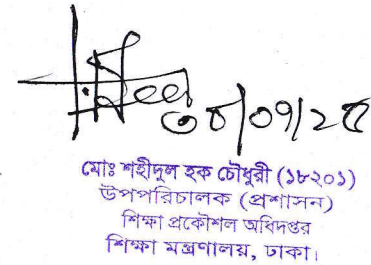 ০৮/০৭/২৫
মোঃ শহীদুল হক চৌধুরী (১৮২০১)
উপপরিচালক (প্রশাসন)
শিক্ষা প্রকৌশল অধিদপ্তর
শিক্ষা মন্ত্রণালয়, ঢাকা।